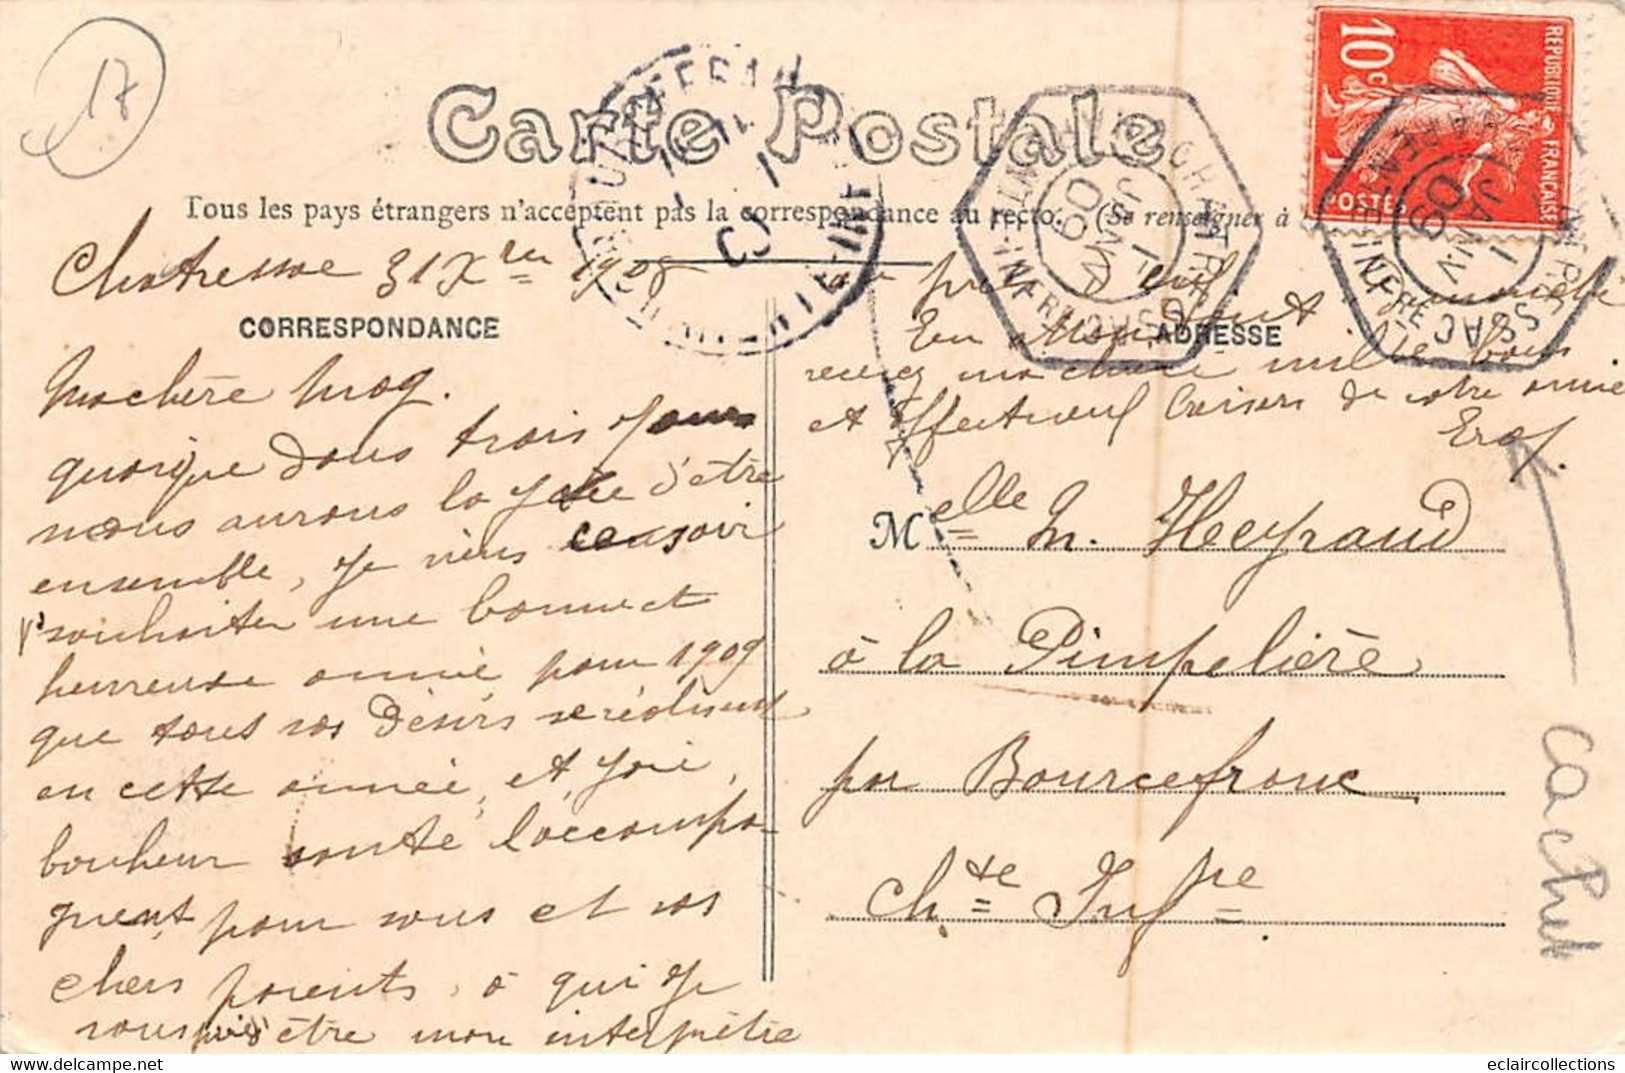 17
Carte Postale
Tous les pays étrangers n'acceptent pas la correspondance au recto. (Se renseigner à
RÉPUBLIQUE FRANÇAISE
10 c/
POSTES
Chatressac 31 Xbre 1908
CORRESPONDANCE
ADRESSE
Ma chère Mag.
quoique dans trois jours
nous aurons la joie d'être
ensemble, je viens
souhaiter une bonne et
heureuse année pour 1909
que tous vos désirs se réalisent
en cette année, et joie,
bonheur santé l'accompa-
gnent pour vous et vos
chers parents, à qui je
vous prie d'être mon interprète
En attendant
recevez ma chère mille bons
et affectueux baisers de votre amie
Melle M. Heyraud
à la Pimpelière
par Bourcefranc
Chte Infre
cachet
eclaircollections.com